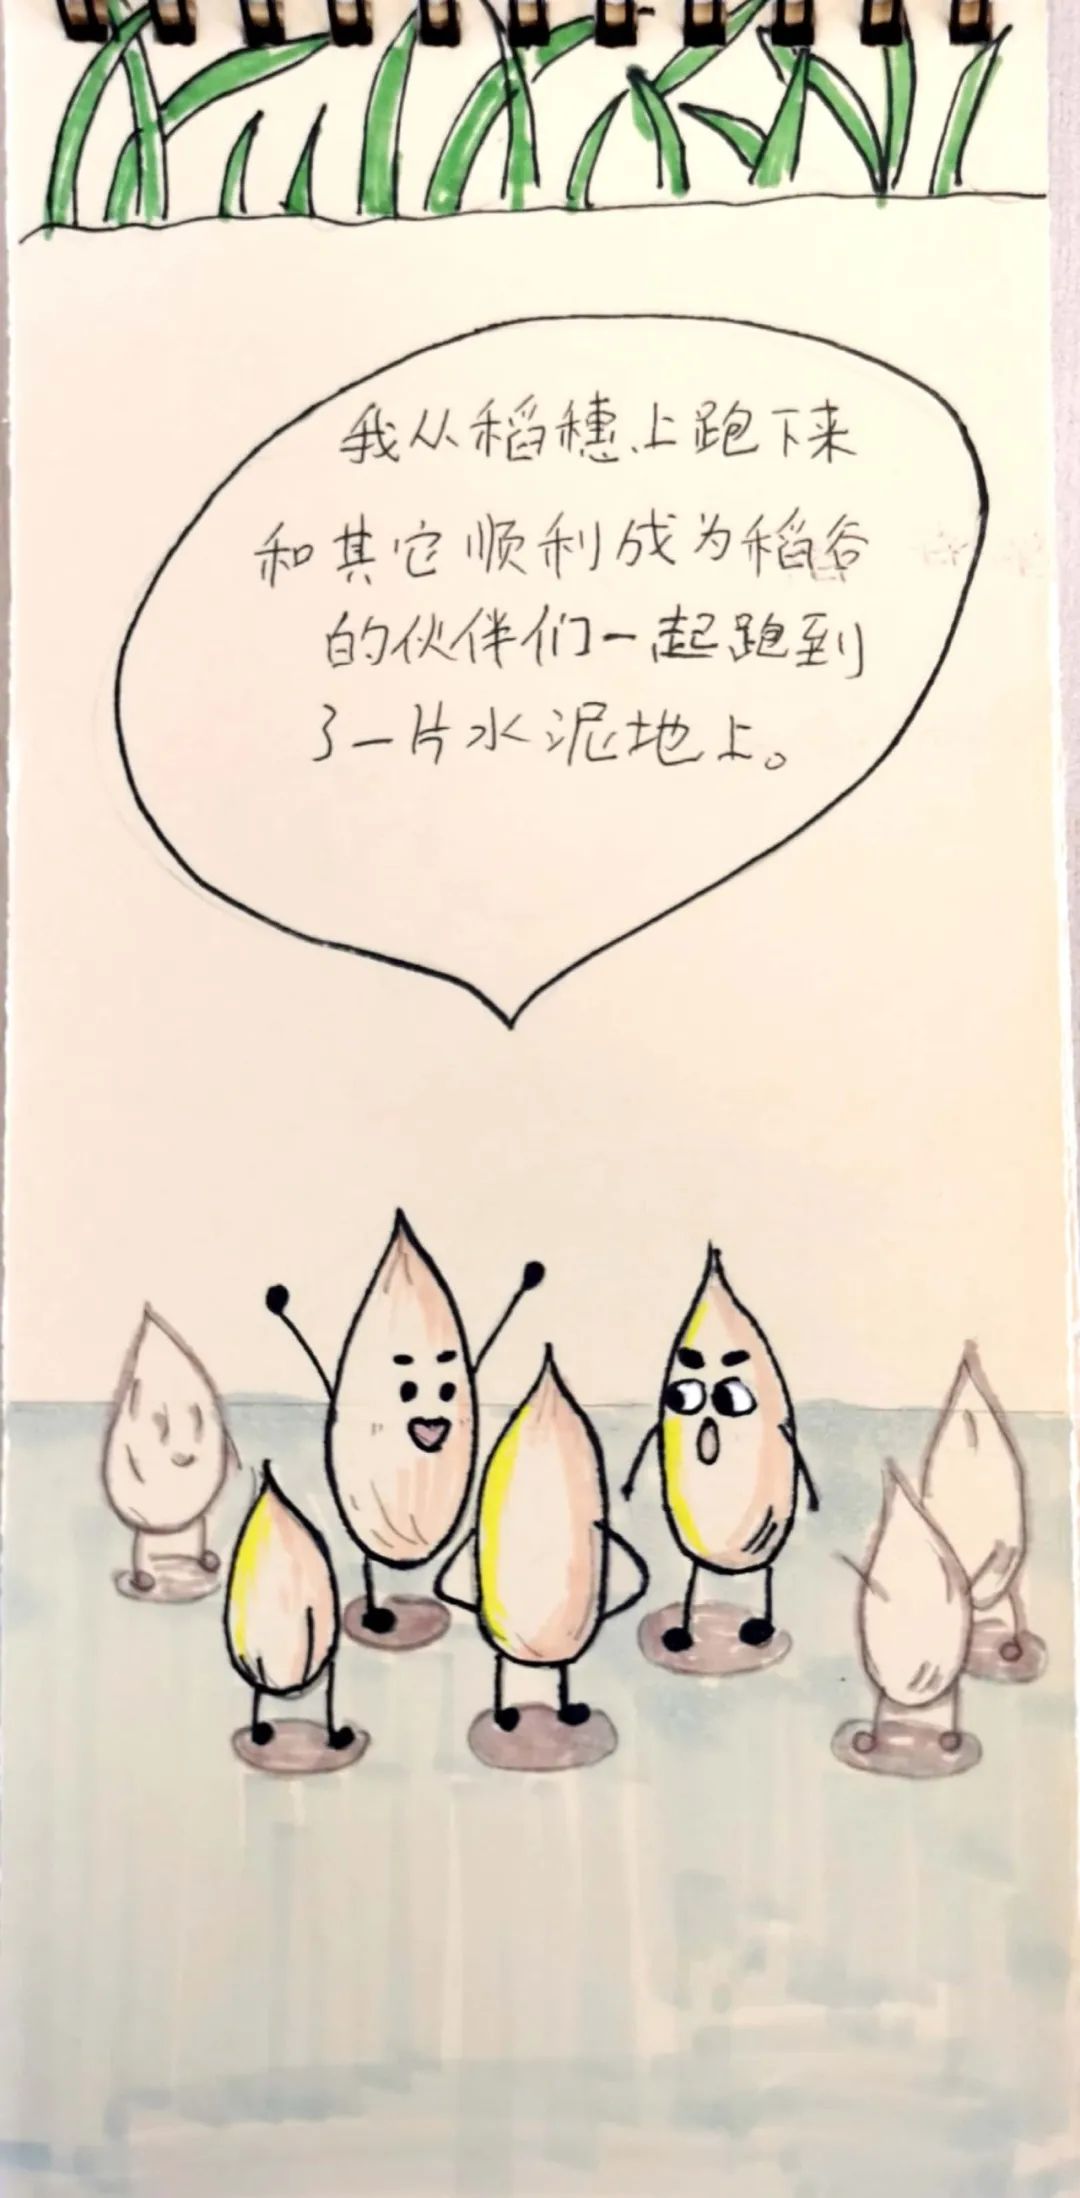 我从稻穗上跑下来
和其它顺利成为稻谷
的伙伴们一起跑到
了一片水泥地上。